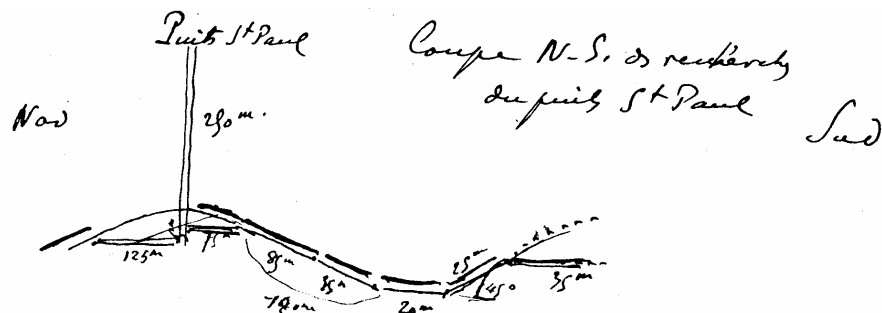 Puits St Paul
Coupe N-S. des recherches
du puits St Paul
Nord
Sud
250 m.
125 m
75 m
85 m
85 m
20 m
25 m
45°
35 m